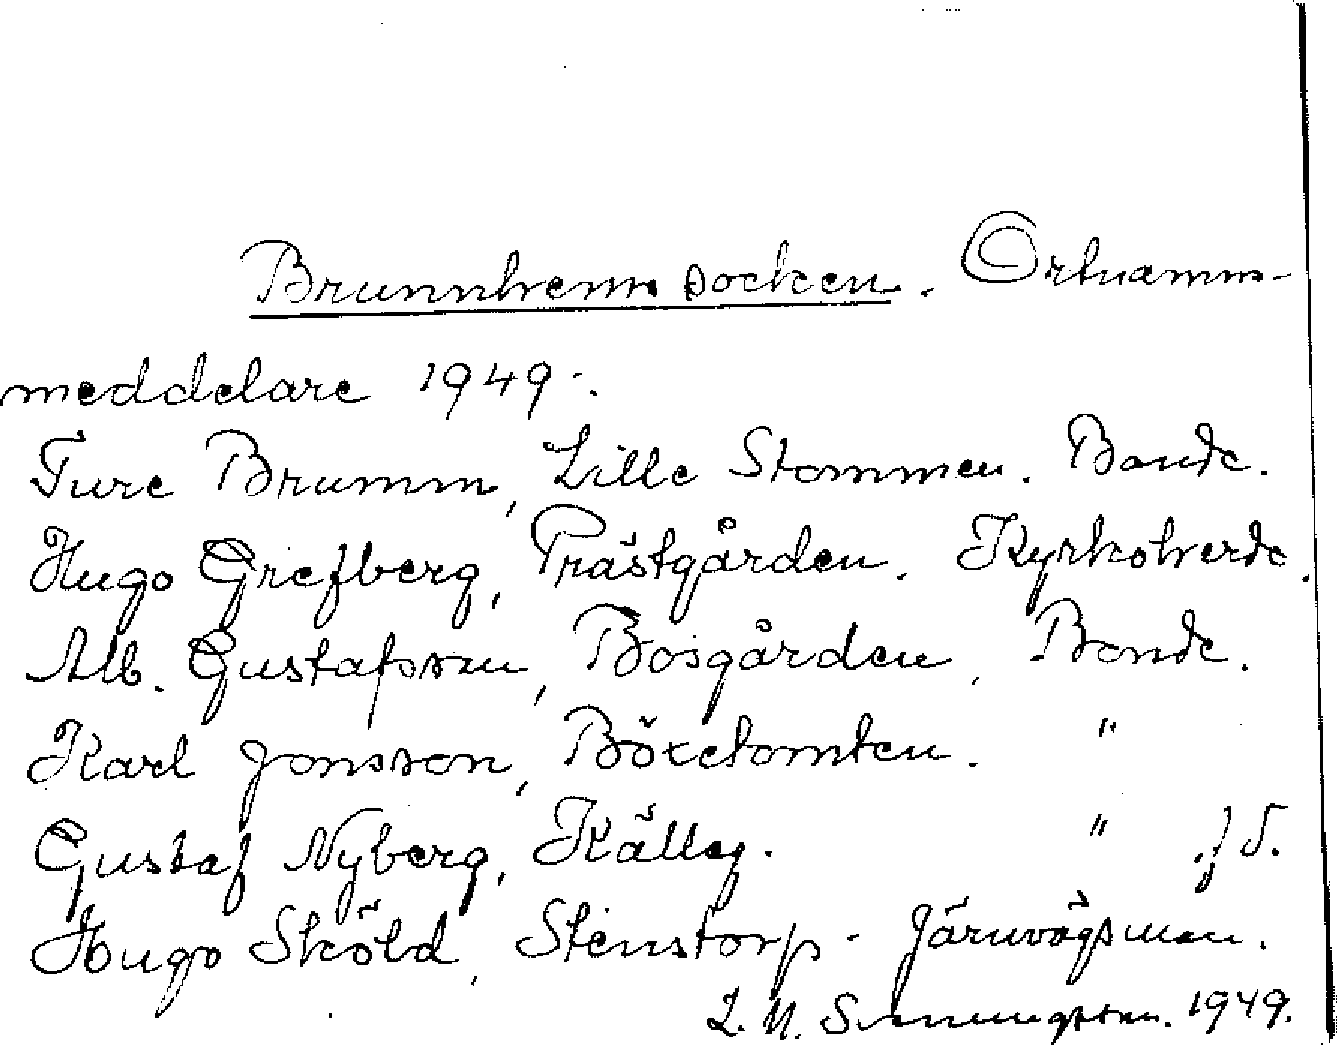 Brunnhems socken. Ortnamns-
meddelare 1949:.
Ture Brumm, Lille Stommen. Bonde.
Hugo Grefberg, Prästgården. Kyrkoherde.
Alb. Gustafsson, Bosgården, Bonde.
Karl Jonsson, Böxetomten. "
Gustaf Nyberg, Källeg. " f.d.
Hugo Sköld, Stenstorp - Järnvägsman.
1949.